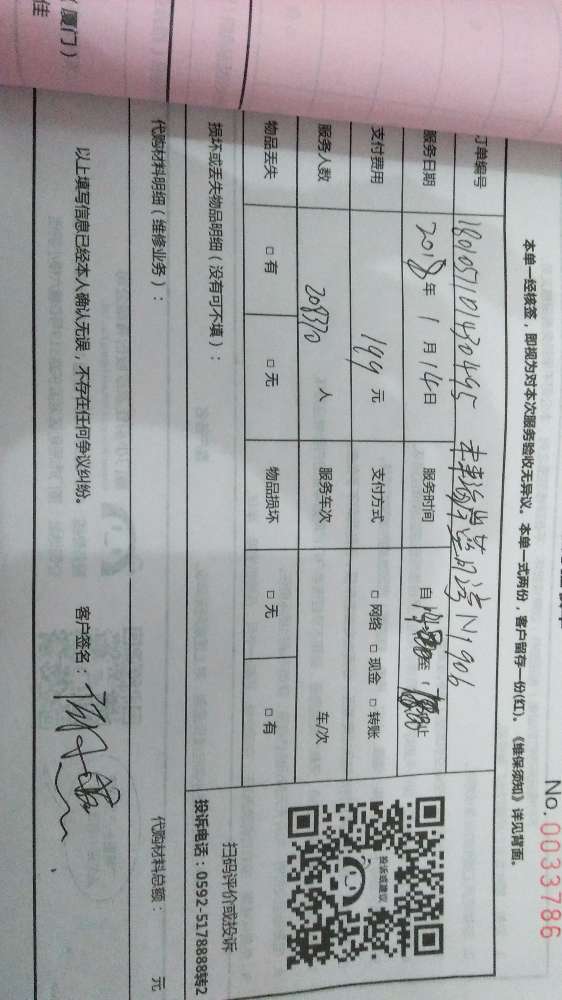 No. 0033786
本单一经核签，即视为对本次服务验收无异议。本单一式两份，客户留存一份(红)。《维保须知》详见背面。
订单编号 180105101430495 N1906
服务日期 2018年 1月 14日 服务时间 自 至
支付费用 199 元 支付方式 □ 网络 □ 现金 □ 转账
服务人数 人 服务车次 车/次
物品丢失 □ 有 □ 无 物品损坏 □ 无 □ 有
投诉或建议
扫码评价或投诉
投诉电话：0592-5178888转2
损坏或丢失物品明细（没有可不填）：
代购材料明细（维修业务）： 代购材料总额： 元
以上填写信息已经本人确认无误，不存在任何争议纠纷。 客户签名：
（厦门）
佳